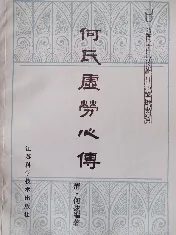 何氏虛勞心傳
清·何炫
江苏科学技术出版社